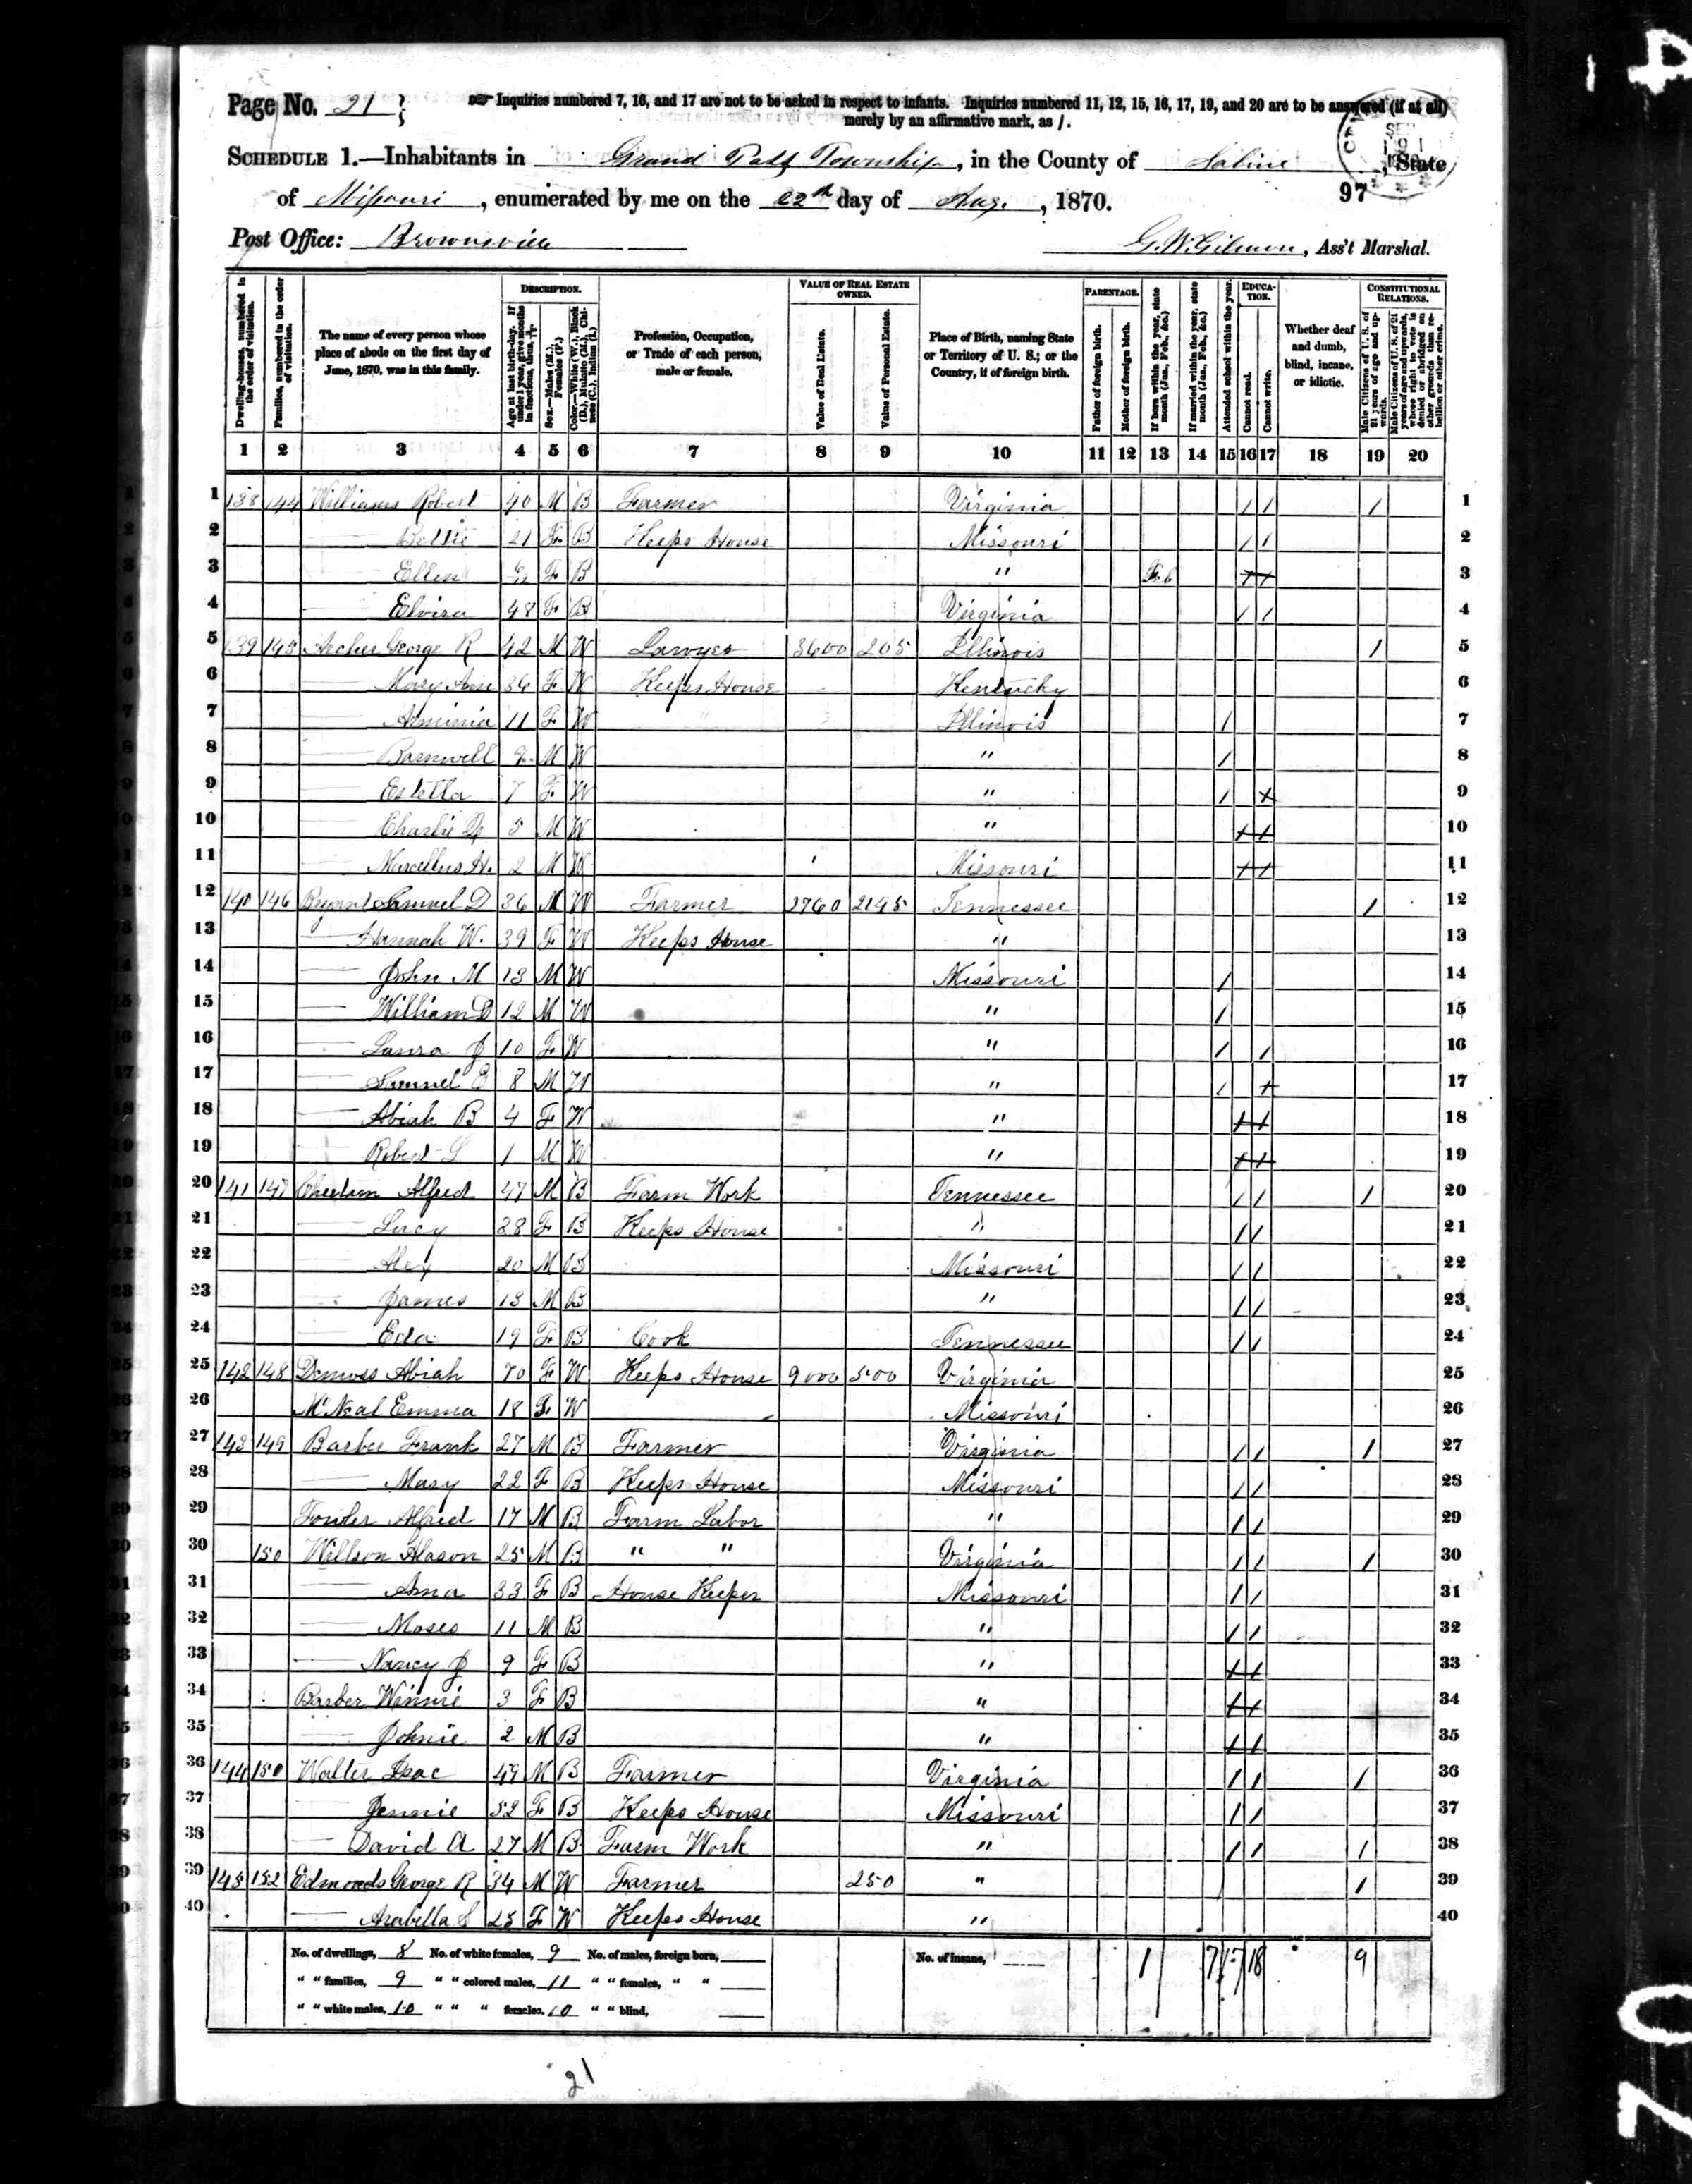 Page No. 21
Inquiries numbered 7, 16, and 17 are not to be asked in respect to infants. Inquiries numbered 11, 12, 15, 16, 17, 19, and 20 are to be answered (if at all)
merely by an affirmative mark, as /.
SCHEDULE 1.—Inhabitants in Grand Pass Township, in the County of Saline, State
of Missouri, enumerated by me on the 22d day of Aug., 1870.
97
Post Office: Brownsville
G. W. Gilmore, Ass't Marshal.
Dwelling-houses, numbered in the order of visitation.
Families, numbered in the order of visitation.
The name of every person whose place of abode on the first day of June, 1870, was in this family.
DESCRIPTION.
Age at last birth-day. If under 1 year, give months in fractions, thus, 3/12
Sex.—Males (M.), Females (F.)
Color.—White (W.), Black (B.), Mulatto (M.), Chinese (C.), Indian (I.)
Profession, Occupation, or Trade of each person, male or female.
VALUE OF REAL ESTATE OWNED.
Value of Real Estate.
Value of Personal Estate.
Place of Birth, naming State or Territory of U. S.; or the Country, if of foreign birth.
PARENTAGE.
Father of foreign birth.
Mother of foreign birth.
If born within the year, state month (Jan., Feb., &c.)
If married within the year, state month (Jan., Feb., &c.)
Attended school within the year.
EDUCATION.
Cannot read.
Cannot write.
Whether deaf and dumb, blind, insane, or idiotic.
CONSTITUTIONAL RELATIONS.
Male Citizens of U. S. of 21 years of age and upwards.
Male Citizens of U. S. of 21 years of age and upwards, whose right to vote is denied or abridged on other grounds than rebellion or other crime.
1 2 3 4 5 6 7 8 9 10 11 12 13 14 15 16 17 18 19 20
1 138 144 Williams Robert 40 M B Farmer Virginia / / / 1
2 —— Bettie 21 F B Keeps House Missouri / / 2
3 —— Ellen F B " Feb 3
4 —— Elvira 48 F B Virginia / / 4
5 139 145 Archer George R 42 M W Lawyer 3600 205 Illinois / 5
6 —— Mary Ann 36 F W Keeps House Kentucky 6
7 —— Arminia 11 F W Illinois / 7
8 —— Barnwell M W " / 8
9 —— Estella 7 F W " / 9
10 —— Charlie 5 M W " 10
11 —— Marcellus H. 2 M W Missouri 11
12 140 146 Bryant Samuel D 36 M W Farmer 2760 2195 Tennessee / 12
13 —— Hannah W. 39 F W Keeps House " 13
14 —— John M 13 M W Missouri / 14
15 —— William D 12 M W " / 15
16 —— Laura J 10 F W " / / 16
17 —— Samuel E 8 M W " / 17
18 —— Abiah B 4 F W " 18
19 —— Robert L 1 M W " 19
20 141 147 Cheatam Alfred 47 M B Farm Work Tennessee / / / 20
21 —— Lucy 38 F B Keeps House " / / 21
22 —— Alex 20 M B Missouri / / 22
23 —— James 13 M B " / / 23
24 —— Eda 19 F B Cook Tennessee / / 24
25 142 148 Demoss Abiah 70 F W Keeps House 9000 500 Virginia 25
26 McNeal Emma 18 F W Missouri 26
27 143 149 Barber Frank 27 M B Farmer Virginia / / / 27
28 —— Mary 22 F B Keeps House Missouri / / 28
29 Fowler Alfred 17 M B Farm Labor " / / 29
30 150 Willson Mason 25 M B " " Virginia / / / 30
31 —— Ama 33 F B House Keeper Missouri / / 31
32 —— Moses 11 M B " / / 32
33 —— Nancy J 9 F B " 33
34 Barber Winnie 3 F B " 34
35 —— Johnie 2 M B " 35
36 144 150 Walter Isac 49 M B Farmer Virginia / / / 36
37 —— Jennie 52 F B Keeps House Missouri / / 37
38 —— David A 27 M B Farm Work " / / / 38
39 145 152 Edmonds George R 34 M W Farmer 250 " / 39
40 —— Arabella S 25 F W Keeps House " 40
No. of dwellings, 8 No. of white females, 9 No. of males, foreign born, No. of insane, 1 7 17 18 9
" " families, 9 " " colored males, 11 " " females, " "
" " white males, 10 " " " females, 10 " " blind,
21